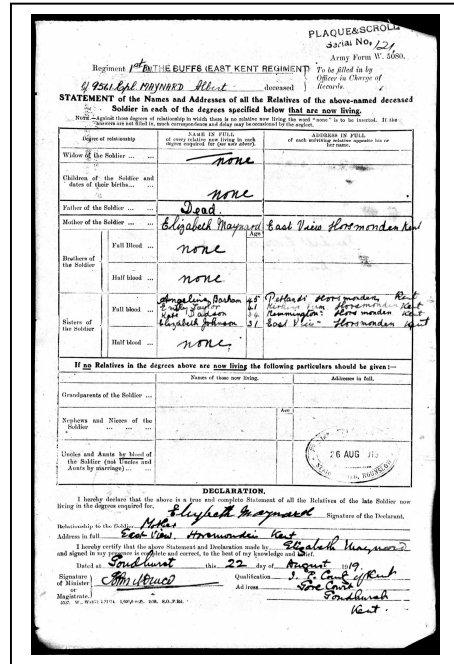 PLAQUE & SCROLL
Serial No. 121.
Army Form W. 5080.
Regiment 1st Bn THE BUFFS (EAST KENT REGIMENT)
To be filled in by Officer in Charge of Records.
9561 Cpl. MAYNARD Albert deceased
STATEMENT of the Names and Addresses of all the Relatives of the above-named deceased
Soldier in each of the degrees specified below that are now living.
NOTE.—Against those degrees of relationship in which there is no relative now living the word "none" is to be inserted. If the
answers are not filled in, much correspondence and delay may be occasioned by the neglect.
Degree of relationship
NAME IN FULL
of every relative now living in each
degree enquired for (see note above).
ADDRESS IN FULL
of each surviving relative opposite his or
her name.
Widow of the Soldier ... ... none
Children of the Soldier and
dates of their births... ... none
Father of the Soldier ... ... Dead.
Mother of the Soldier ... ... Elizabeth Maynard East View Horsmonden Kent
Age
Brothers of
the Soldier
Full Blood ... none
Half blood ... none
Sisters of
the Soldier
Full blood ... Angelina Barham 45 Horsmonden Kent
Emily Taylor 41 Horsmonden Kent
Kate 34 Horsmonden Kent
Elizabeth Johnson 31 East View Horsmonden Kent
Half blood ... none.
If no Relatives in the degrees above are now living the following particulars should be given:—
Names of those now living.
Addresses in full.
Grandparents of the Soldier ...
Age
Nephews and Nieces of the
Soldier ... ... ...
Uncles and Aunts by blood of
the Soldier (not Uncles and
Aunts by marriage)... ...
26 AUG 1919
HOUNSLOW
DECLARATION.
I hereby declare that the above is a true and complete Statement of all the Relatives of the late Soldier now
living in the degrees enquired for,
Elizabeth Maynard Signature of the Declarant.
Relationship to the Soldier Mother
Address in full East View. Horsmonden Kent
I hereby certify that the above Statement and Declaration made by Elizabeth Maynard
and signed in my presence is complete and correct, to the best of my knowledge and belief.
Dated at Goudhurst this 22 day of August 1919.
Signature
of Minister
or
Magistrate.
Qualification J. P. Kent
Address Court
Goudhurst
Kent.